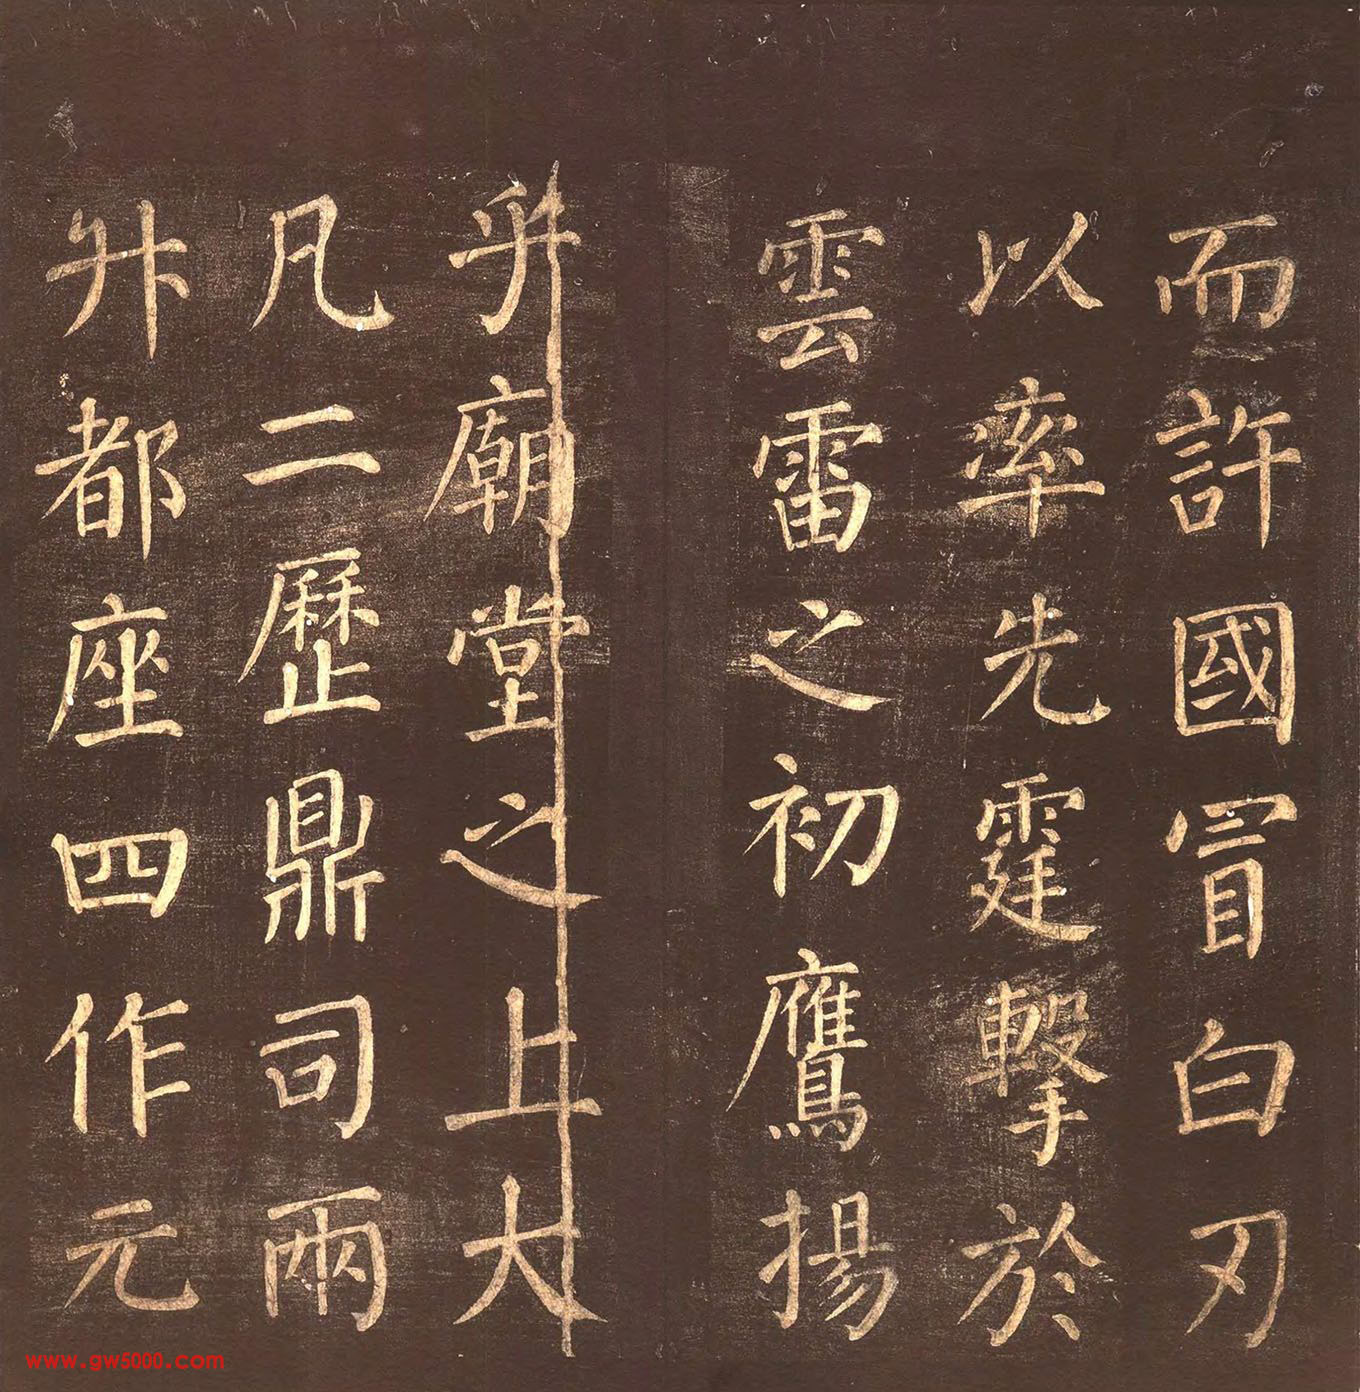 而許國冒白刃
以率先霆擊於
雲雷之初鷹揚
乎廟堂之上大
凡二歷鼎司兩
升都座四作元
www.gw5000.com